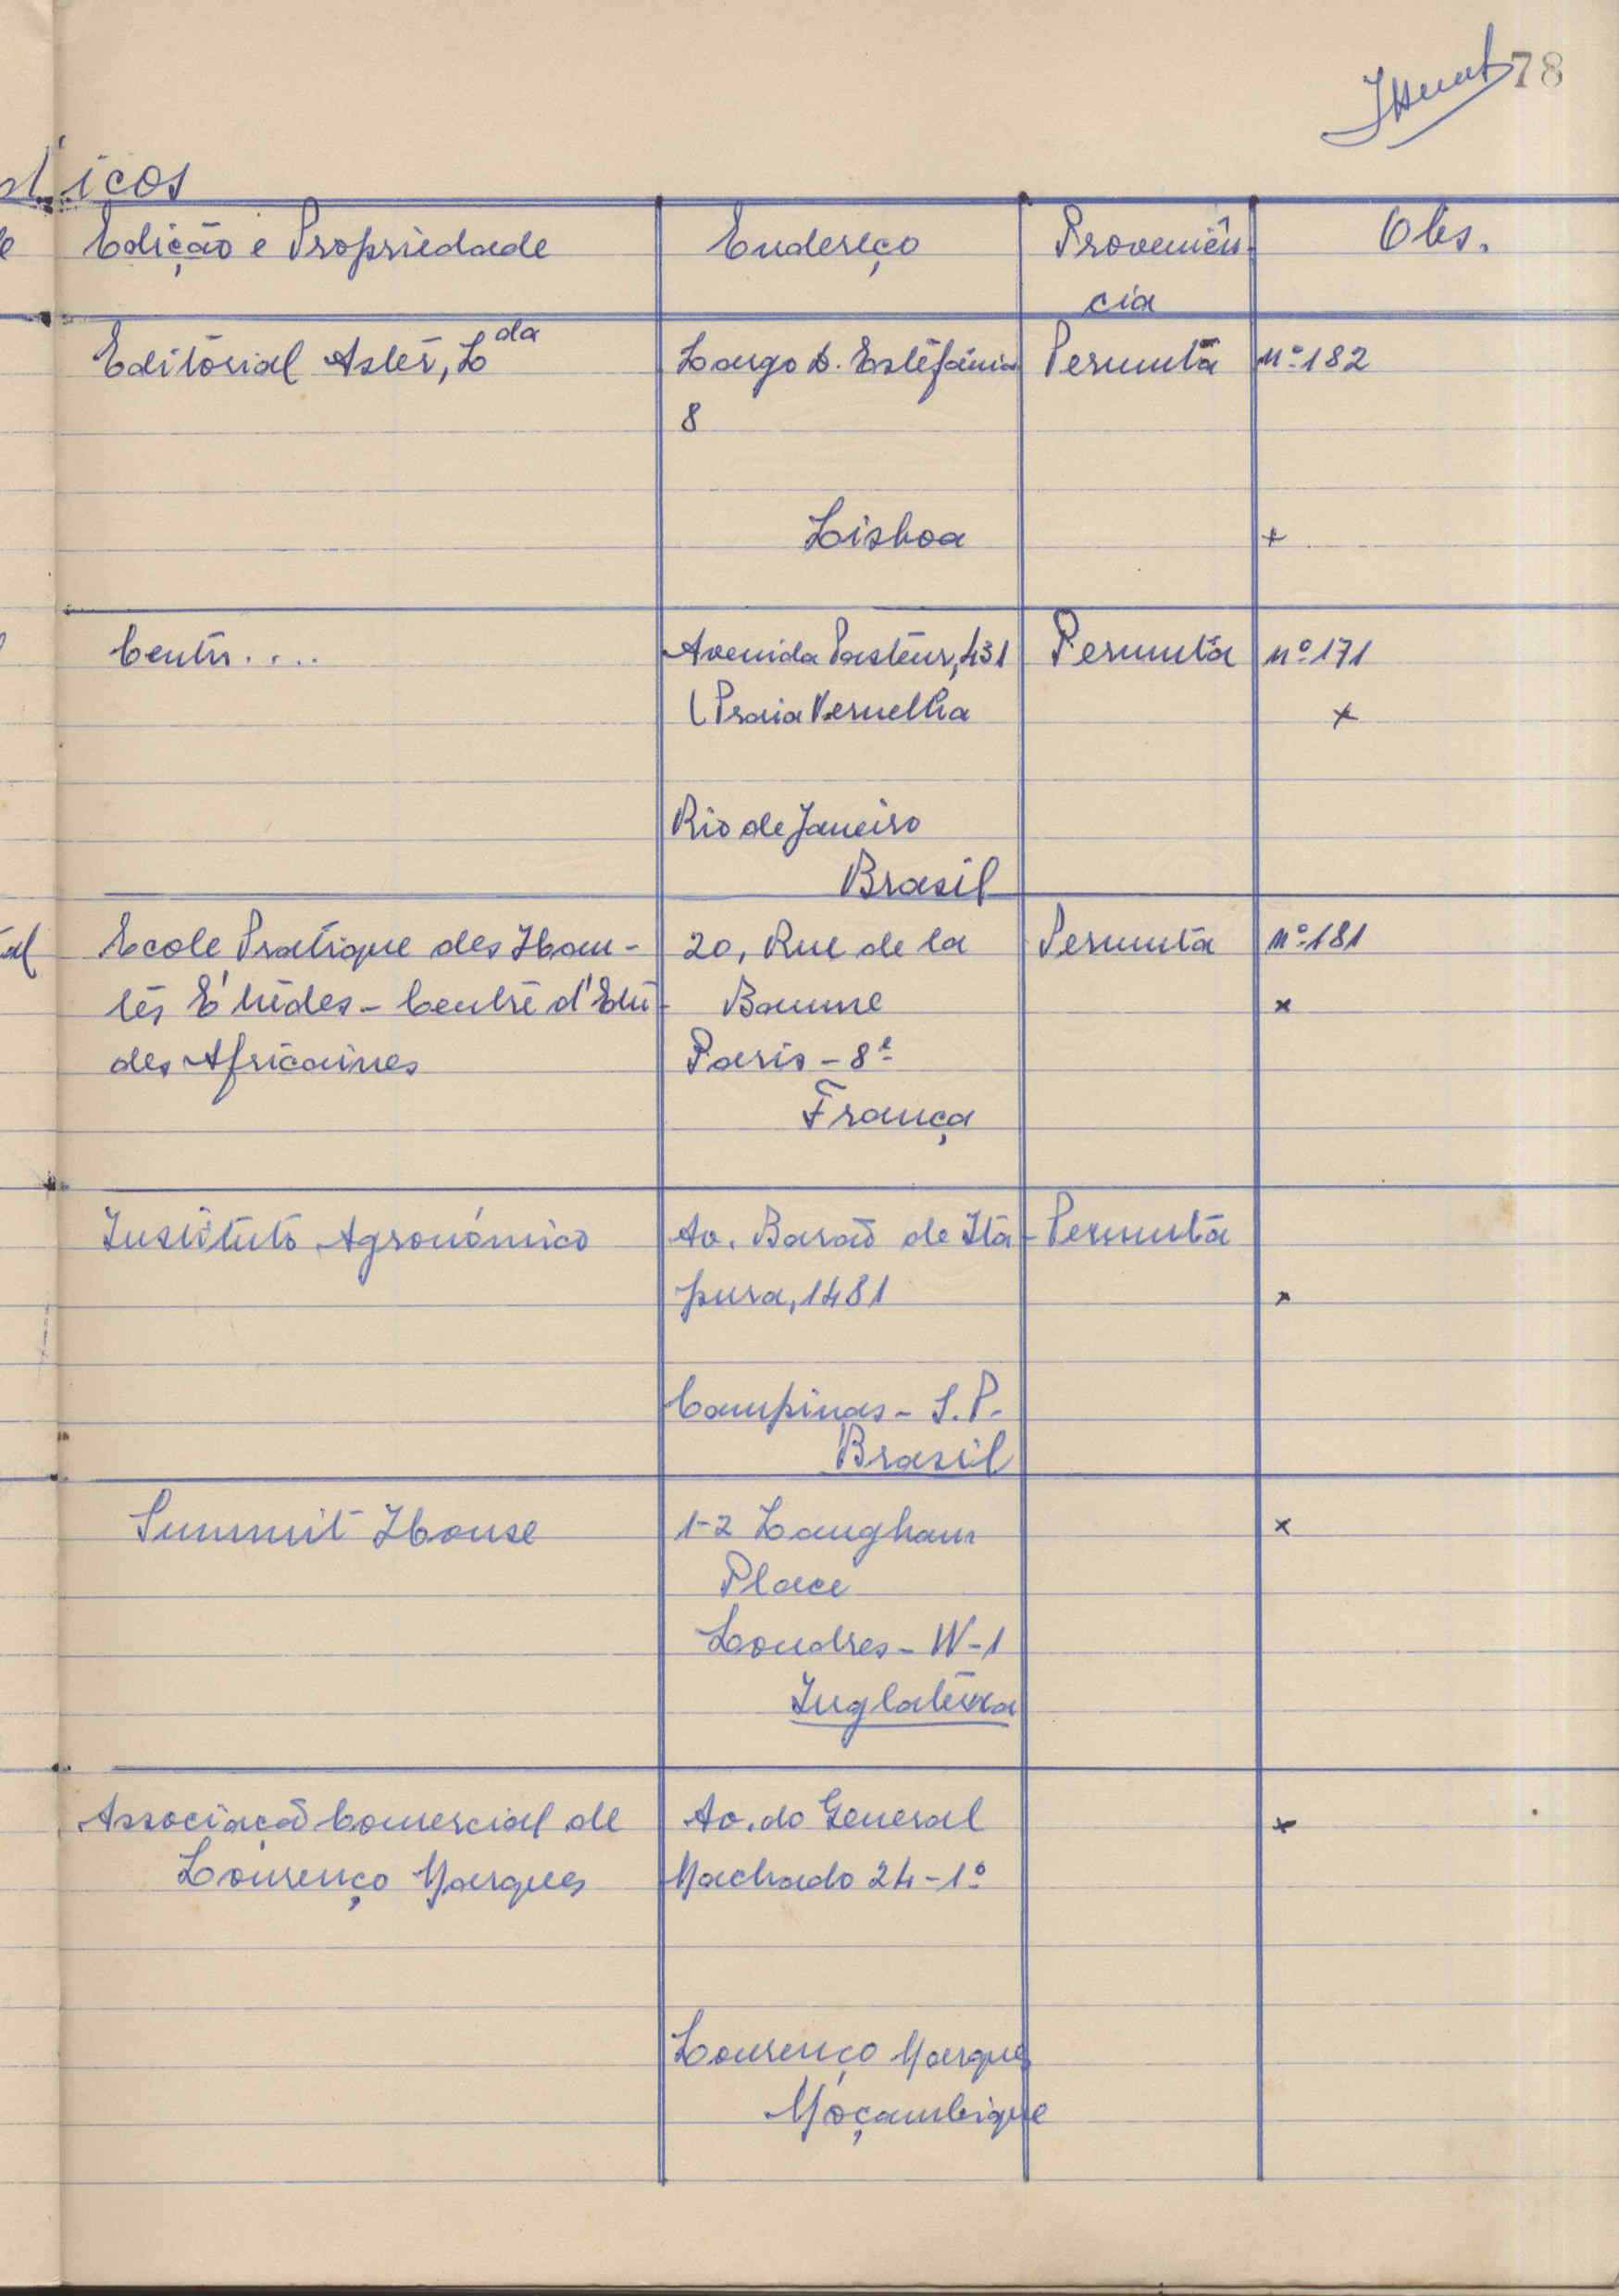 78
icos
Edição e Propriedade Endereço Proveniên- Obs.
cia
Editorial Aster, Lda Largo D. Estefânia Permuta Nº 182
8
Lisboa x
Centr.... Avenida Pasteur, 431 Permuta Nº 171
(Praia Vermelha x
Rio de Janeiro
Brasil
Ecole Pratique des Hau- 20, Rue de la Permuta Nº 181
tes É'tudes - Centre d'Etu- Baume x
des Africaines Paris - 8e
França
Instituto Agronómico Av. Barão de Ita- Permuta
pura, 1481 x
Campinas - S.P.
Brasil
Summit House 1-2 Langham x
Place
Londres - W-1
Inglaterra
Associação Comercial de Av. do General x
Lourenço Marques Machado 24-1º
Lourenço Marques
Moçambique